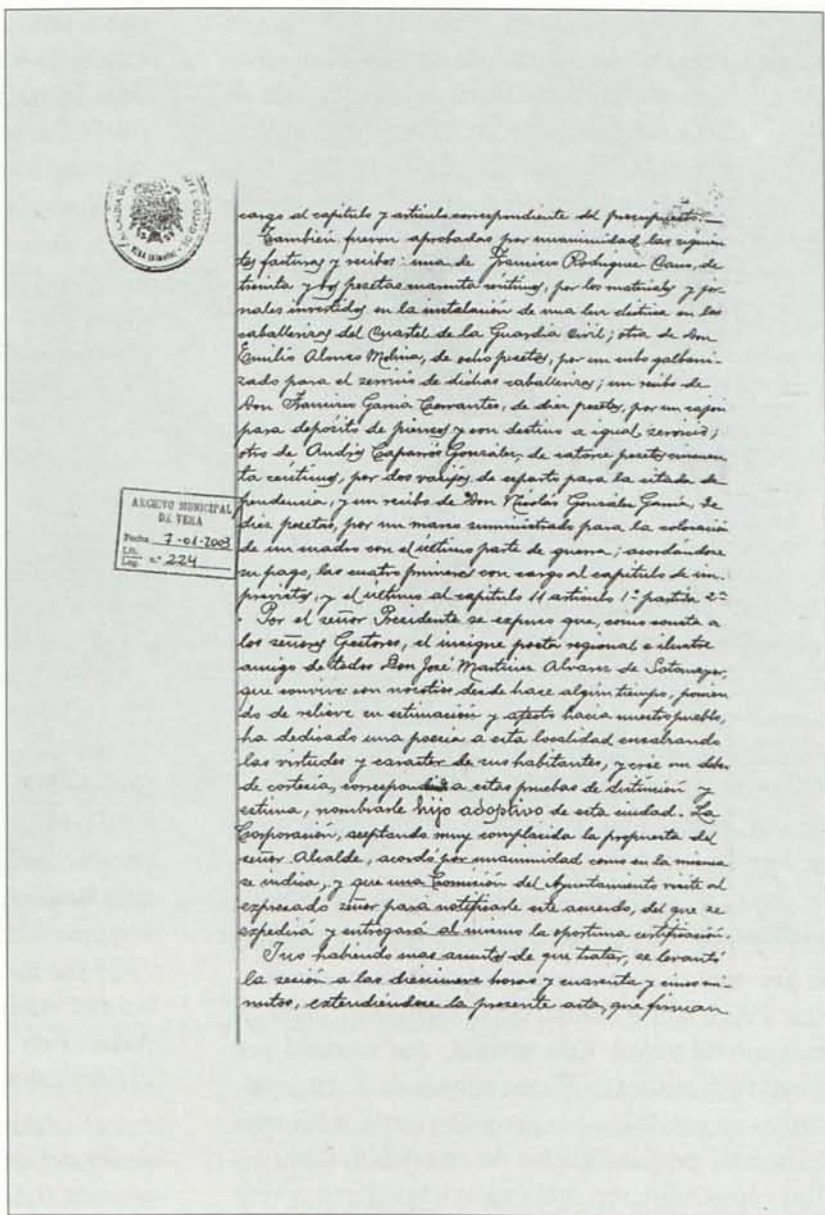 cargo al capítulo y artículo correspondiente del presupuesto.—
También fueron aprobadas por unanimidad, las siguien-
tes facturas y recibos: una de Francisco Rodríguez Cano, de
treinta y dos pesetas cuarenta céntimos, por los materiales y jor-
nales invertidos en la instalación de una luz eléctrica en las
caballerizas del Cuartel de la Guardia Civil; otra de Don
Emilio Alonso Molina, de ocho pesetas, por un cubo galbani-
zado para el servicio de dichas caballerizas; un recibo de
Don Francisco García Cervantes, de diez pesetas, por un cajón
para depósito de piensos y con destino a igual servicio;
otro de Andrés Caparrós González, de catorce pesetas cincuen-
ta céntimos, por dos de esparto para la citada de-
pendencia, y un recibo de Don Nicolás González García, de
diez pesetas, por un marco suministrado para la colocación
de un cuadro con el último parte de guerra; acordándose
su pago, los cuatro primeros con cargo al capítulo de im-
previstos, y el último al capítulo 11 artículo 1º partida 2ª
Por el señor Presidente se expuso que, como consta a
los señores Gestores, el insigne poeta regional e ilustre
amigo de todos Don José Martínez Alvarez de Sotomayor,
que convive con nosotros desde hace algún tiempo, ponien-
do de relieve su estimación y afecto hacia nuestro pueblo,
ha dedicado una poesía a esta localidad ensalzando
las virtudes y caracter de sus habitantes, y cree un deber
de cortesía, correspondiendo a estas pruebas de distinción y
estima, nombrarle hijo adoptivo de esta ciudad. La
Corporación, aceptando muy complacida la propuesta del
señor Alcalde, acordó por unanimidad como en la misma
se indica, y que una Comisión del Ayuntamiento visite al
expresado señor para notificarle este acuerdo, del que se
expedirá y entregará al mismo la oportuna certificación.
Y no habiendo mas asuntos de que tratar, se levantó
la sesión a las diecinueve horas y cuarenta y cinco mi-
nutos, extendiéndose la presente acta, que firman
ARCHIVO MUNICIPAL
DE VERA
Fecha 7-01-2003
Lib.
Leg. nº 224